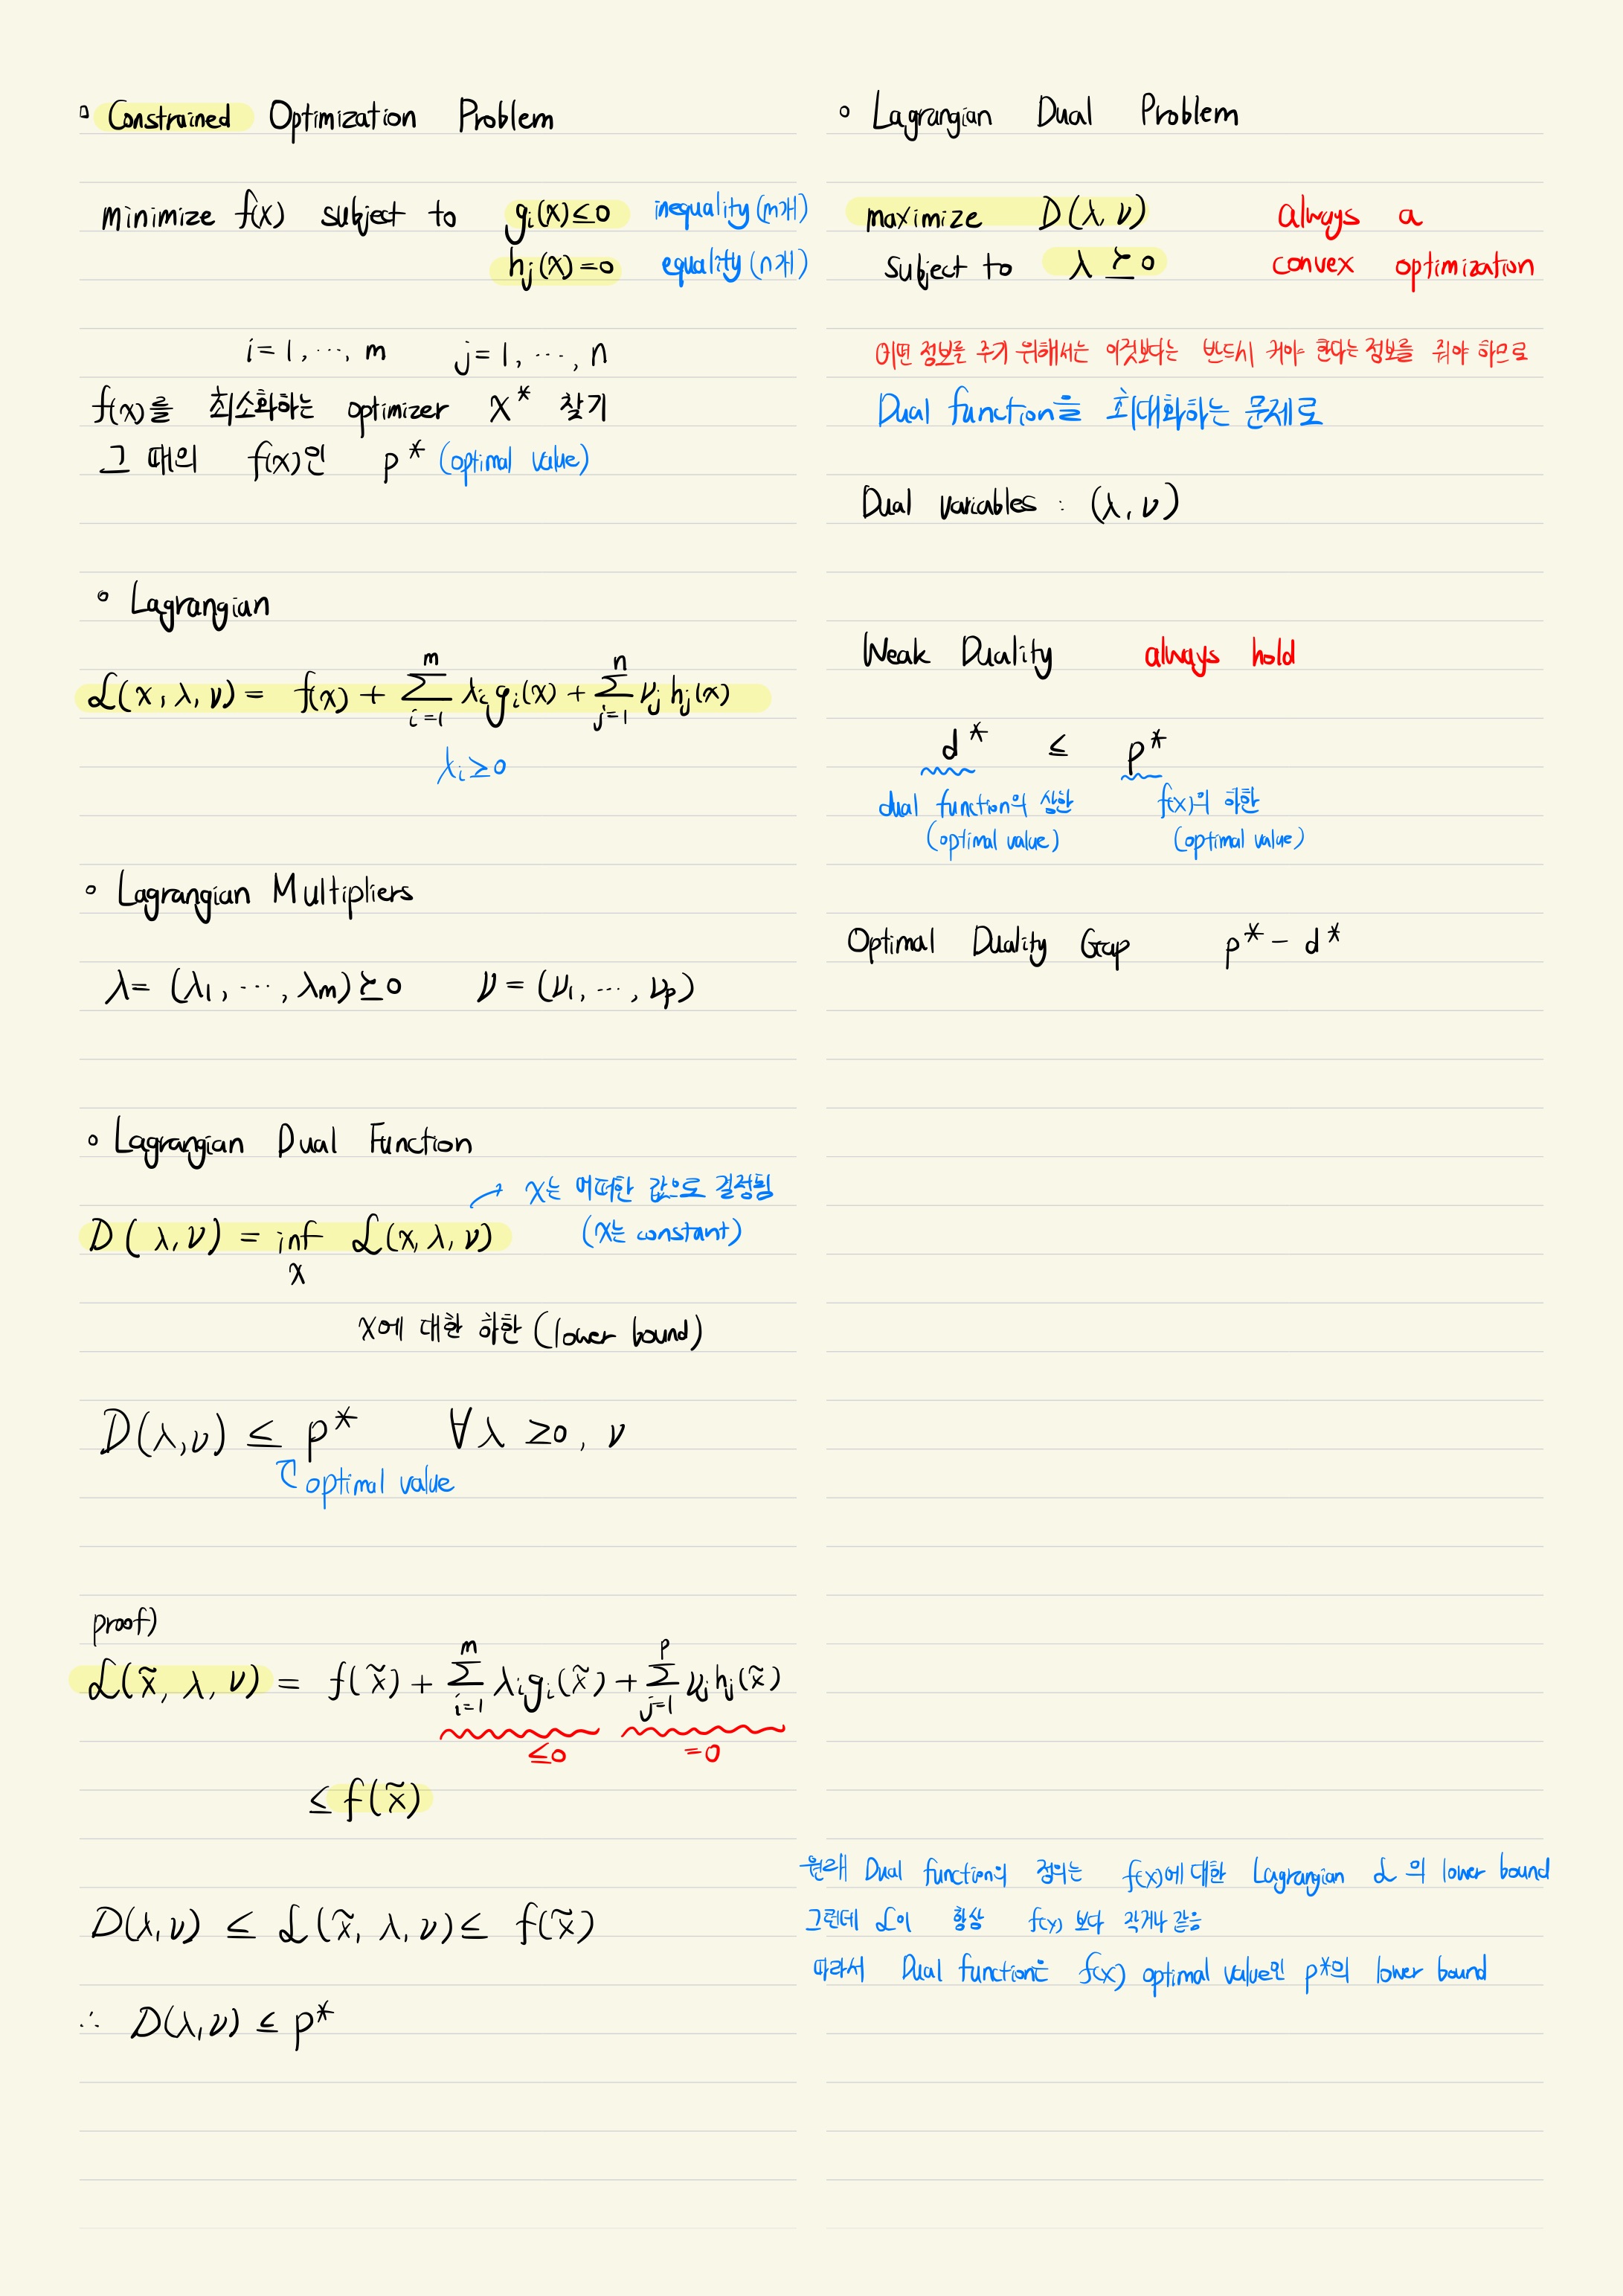 Constrained Optimization Problem
minimize f(x) subject to gᵢ(x)≤0 inequality (m개)
hⱼ(x)=0 equality (n개)
i=1, ···, m j=1, ···, n
f(x)를 최소화하는 optimizer x* 찾기
그 때의 f(x)인 p* (optimal value)
Lagrangian
ℒ(x, λ, ν) = f(x) + ∑ᵢ₌₁ᵐ λᵢgᵢ(x) + ∑ⱼ₌₁ⁿ νⱼhⱼ(x)
λᵢ≥0
Lagrangian Multipliers
λ= (λ₁, ···, λₘ)⪰0 ν = (ν₁, ···, νₚ)
Lagrangian Dual Function
x는 어떠한 값으로 결정됨
D(λ, ν) = inf ℒ(x, λ, ν) (x는 constant)
x
x에 대한 하한 (lower bound)
D(λ, ν) ≤ p* ∀λ ≥0, ν
optimal value
proof)
ℒ(x̃, λ, ν) = f(x̃) + ∑ᵢ₌₁ᵐ λᵢgᵢ(x̃) + ∑ⱼ₌₁ᵖ νⱼhⱼ(x̃)
≤0 =0
≤ f(x̃)
D(λ, ν) ≤ ℒ(x̃, λ, ν) ≤ f(x̃)
∴ D(λ, ν) ≤ p*
Lagrangian Dual Problem
maximize D(λ, ν) always a
subject to λ ⪰0 convex optimization
어떤 정보를 주기 위해서는 이것보다는 반드시 커야 한다는 정보를 줘야 하므로
Dual function을 최대화하는 문제로
Dual variables : (λ, ν)
Weak Duality always hold
d* ≤ p*
dual function의 상한 f(x)의 하한
(optimal value) (optimal value)
Optimal Duality Gap p* - d*
원래 Dual function의 정의는 f(x)에 대한 Lagrangian ℒ의 lower bound
그런데 ℒ이 항상 f(x) 보다 작거나 같음
따라서 Dual function은 f(x) optimal value인 p*의 lower bound